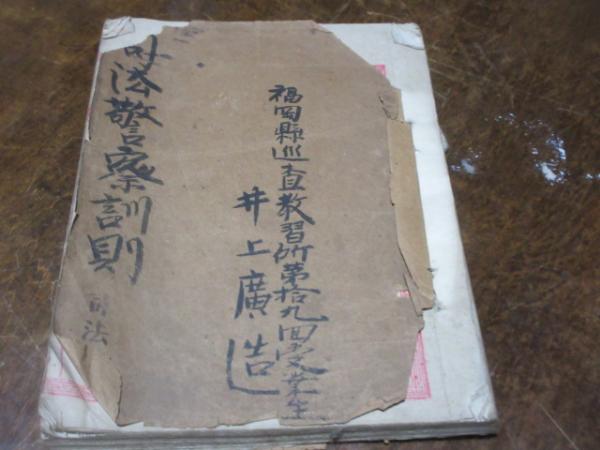 福岡縣巡査教習所第拾九回受業生
井上廣造
司法警察訓則
司法